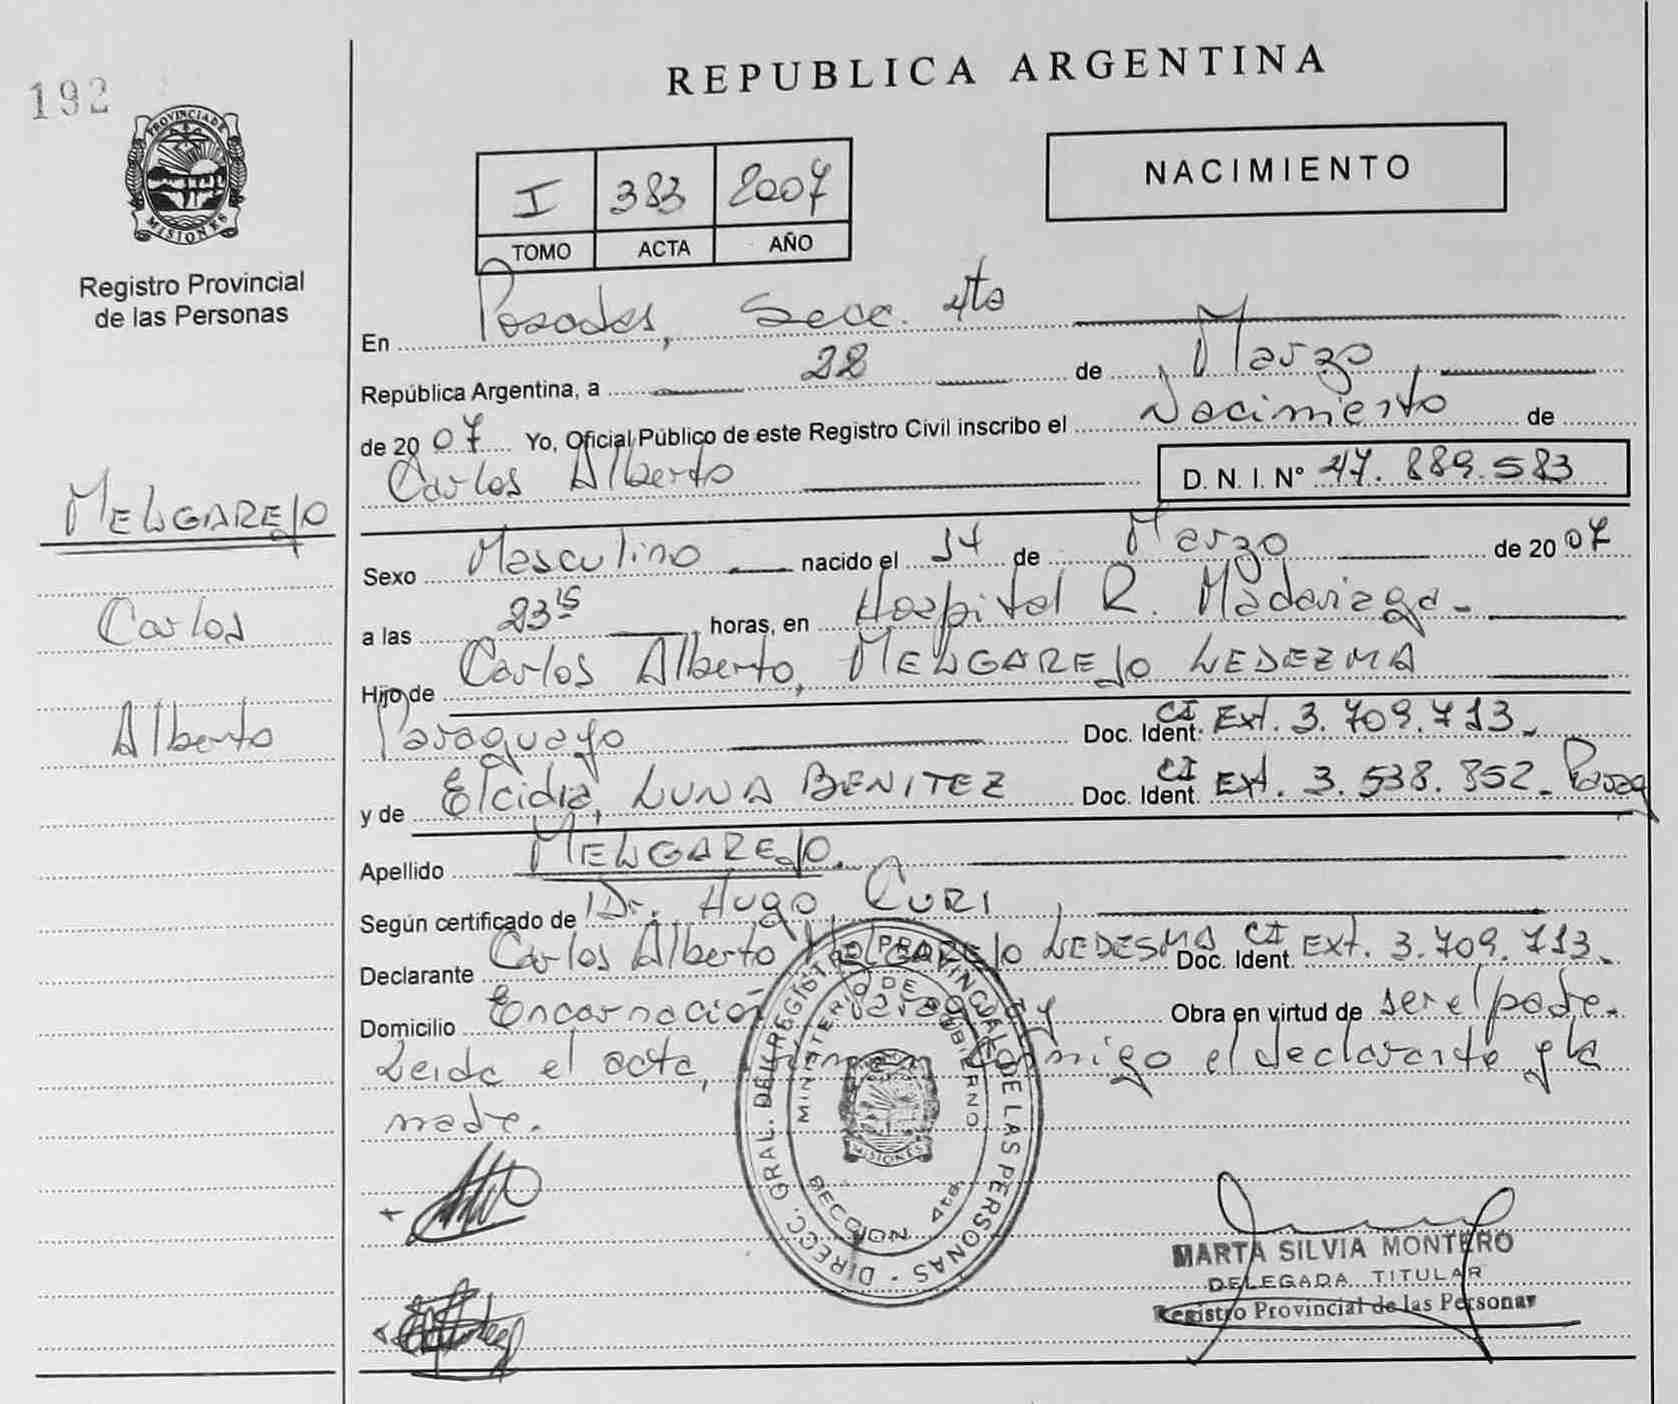 192
PROVINCIA DE
MISIONES
Registro Provincial
de las Personas
MELGAREJO
Carlos
Alberto
REPUBLICA ARGENTINA
I 383 2007
TOMO ACTA AÑO
NACIMIENTO
En Posadas, Secc. 4ta
República Argentina, a 22 de Marzo
de 2007 Yo, Oficial Público de este Registro Civil inscribo el Nacimiento de
Carlos Alberto D. N. I. Nº 47.889.583
Sexo Masculino nacido el 14 de Marzo de 2007
a las 23 15 horas, en Hospital R. Madariaga.-
Hijo de Carlos Alberto, MELGAREJO LEDEZMA
Paraguayo Doc. Ident. CI Ext. 3.709.713.-
y de Elcidia, LUNA BENITEZ Doc. Ident. CI Ext. 3.538.852.- Parag
Apellido MELGAREJO.
Según certificado de Dr. Hugo CURI
Declarante Carlos Alberto MELGAREJO LEDESMA Doc. Ident. CI Ext. 3.709.713.-
Domicilio Encarnación Paraguay Obra en virtud de ser el padre.
Leida el acta, firman conmigo el declarante y la
madre.
DIRECC. GRAL. DEL REGISTRO PROVINCIAL DE LAS PERSONAS
MINISTERIO DE GOBIERNO
MISIONES
SECCION 4ta.
MARTA SILVIA MONTERO
DELEGADA TITULAR
Registro Provincial de las Personas